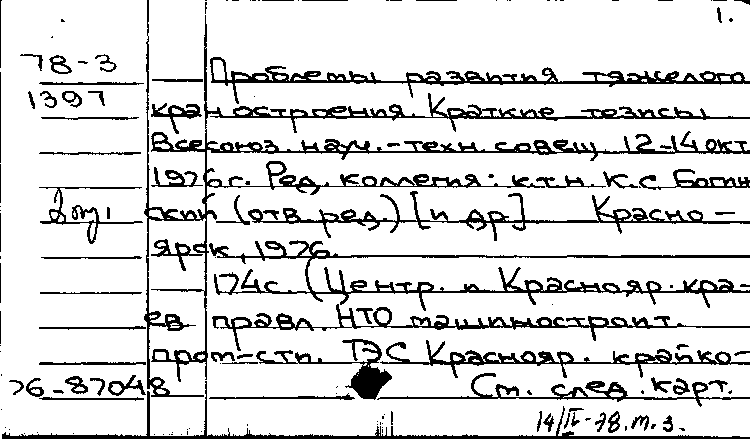 1.
78-3
1397
Проблемы развития тяжелого
краностроения. Краткие тезисы
Всесоюз. науч.-техн. совещ. 12-14 окт.
1976 г. Ред. коллегия: к.т.н. К.С. Богин
ский (отв. ред.) [и др.] Красно-
ярск, 1976.
174с. (Центр. и Краснояр. кра-
ев правл. НТО машиностроит.
пром-сти. ТЭС Краснояр. крайко-
76-87048 См. след. карт.
14/IV-78. т. 3.